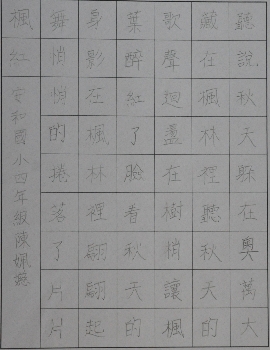 聽說秋天躲在奧萬大
在楓林裡聽秋天的
歌聲迴盪在樹梢讓楓
葉醉紅了臉看秋天的
身影在楓林裡翩翩起
舞悄悄的捲落了片片
楓紅 安和國小四年級陳姵